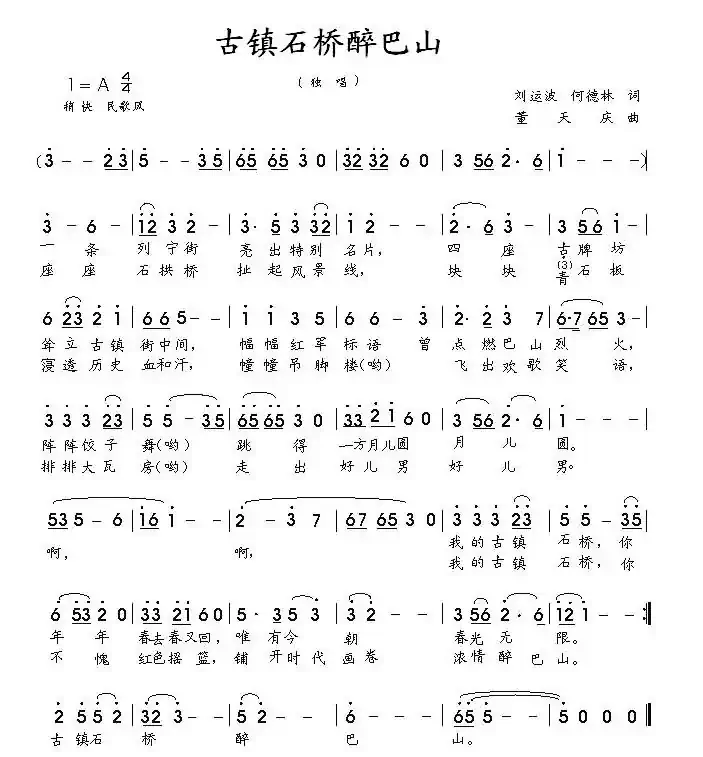 古镇石桥醉巴山
（独 唱）
1=A 4/4
稍快 民歌风
刘运波 何德林 词
董 天 庆 曲
(3 - - 2 3 | 5 - - 3 5 | 65 65 3 0 | 32 32 6 0 | 3 56 2· 6 | 1 - - -)
3 - 6 - | 12 3 2 - | 3· 5 3 32 | 1 2 - - | 2· 6 3 - | 3 56 1 -
一 条 列宁街 亮出特别 名片， 四 座 古牌坊
座 座 石拱桥 扯起风景 线， 块 块 (3) 青石板
6 23 2 1 | 6 6 5 - - | 1 1 3 5 | 6 6 - 3 | 2· 2 3 7 | 6·7 65 3 -
耸立古镇 街中间， 幅幅红军 标语 曾 点燃巴山 烈 火，
浸透历史 血和汗， 幢幢吊脚 楼(哟) 飞出欢歌 笑 语，
3 3 3 23 | 5 5 - 35 | 65 65 3 0 | 33 21 6 0 | 3 56 2· 6 | 1 - - -
阵阵饺子 舞(哟) 跳 得 一方月儿圆 月 儿 圆。
排排大瓦 房(哟) 走 出 好儿男 好 儿 男。
53 5 - 6 | 16 1 - - | 2 - 3 7 | 67 65 3 0 | 3 3 3 23 | 5 5 - 35
啊， 啊， 我的古镇 石桥，你
我的古镇 石桥，你
6 53 2 0 | 33 21 6 0 | 5· 3 5 3 | 3 2 - - | 3 56 2· 6 | 12 1 - - :|
年 年 春去春又回， 唯有今 朝 春光无 限。
不 愧 红色摇篮， 铺开时代 画卷 浓情醉 巴 山。
2 5 5 2 | 32 3 - - | 5 2 - - | 6 - - - | 65 5 - - | 5 0 0 0 ‖
古镇石 桥 醉 巴 山。